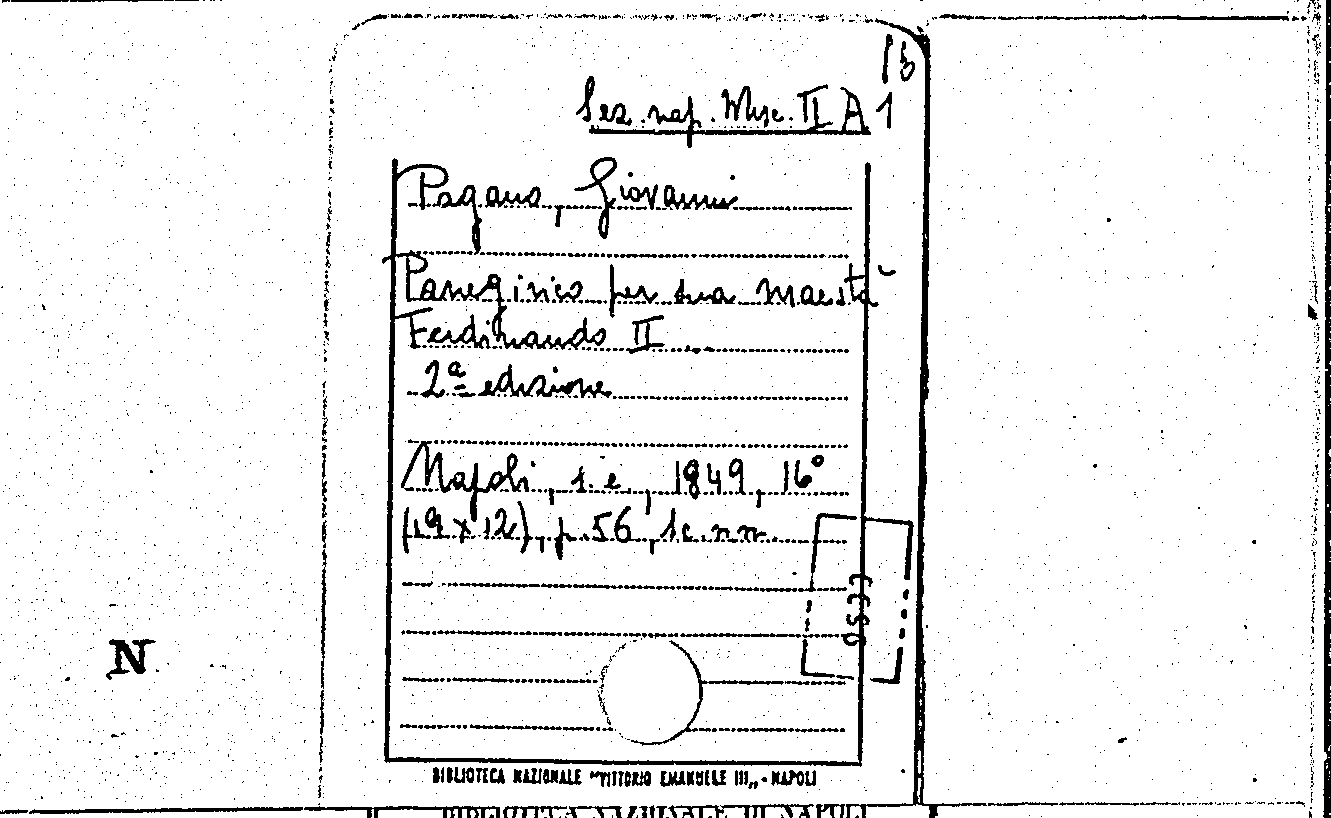 13
Sez. nap. Misc. II A 1
Pagano, Giovanni
Panegirico per sua maestà
Ferdinando II ...
2ª edizione
Napoli, s.e., 1849, 16°
(19 x 12), p. 56, 1c. nn.
0533
N
BIBLIOTECA NAZIONALE "VITTORIO EMANUELE III„ - NAPOLI
BIBLIOTECA NAZIONALE DI NAPOLI